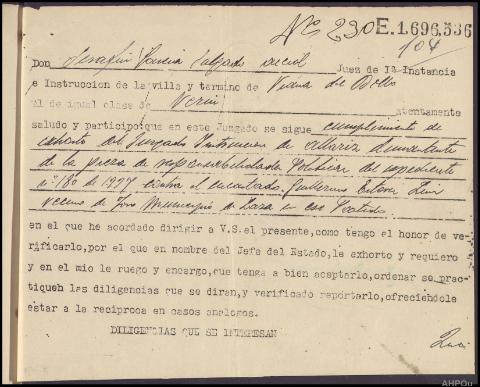 Nº 230 E.1.696.336
104
Don Serafin Garcia Salgado Juez de 1ª Instancia
e Instruccion de la villa y termino de Viana del Bollo
Al de igual clase de Verin atentamente
saludo y participo que en este Juzgado se sigue cumplimiento de
exhorto del Juzgado de Allariz dimanante
de la pieza de responsabilidades Politicas del expediente
nº 180 de 1937 contra el encartado Guillermo
vecino de Municipio de Laza en ese Partido
en el que he acordado dirigir a V.S.el presente,como tengo el honor de ve-
rificarlo,por el que en nombre del Jefe del Estado,le exhorto y requiero
y en el mio le ruego y encargo,que tenga a bien aceptarlo,ordenar se prac-
tiqueh las diligencias que se diran,y verificado reportarlo,ofreciendole
estar a la reciproca en casos analogos.
DILIGENCIAS QUE SE INTERESAN
AHPOu